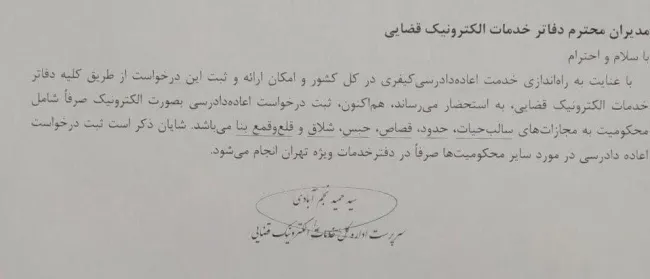 مدیران محترم دفاتر خدمات الکترونیک قضایی
با سلام و احترام
با عنایت به راه‌اندازی خدمت اعاده‌دادرسی‌کیفری در کل کشور و امکان ارائه و ثبت این درخواست از طریق کلیه دفاتر
خدمات الکترونیک قضایی، به استحضار می‌رساند، هم‌اکنون، ثبت درخواست اعاده‌دادرسی بصورت الکترونیک صرفاً شامل
محکومیت به مجازات‌های سالب‌حیات، حدود، قصاص، حبس، شلاق و قلع‌وقمع بنا می‌باشد. شایان ذکر است ثبت درخواست
اعاده دادرسی در مورد سایر محکومیت‌ها صرفاً در دفترخدمات ویژه تهران انجام می‌شود.
سید حمید نجم آبادی
سرپرست اداره کل خدمات الکترونیک قضایی